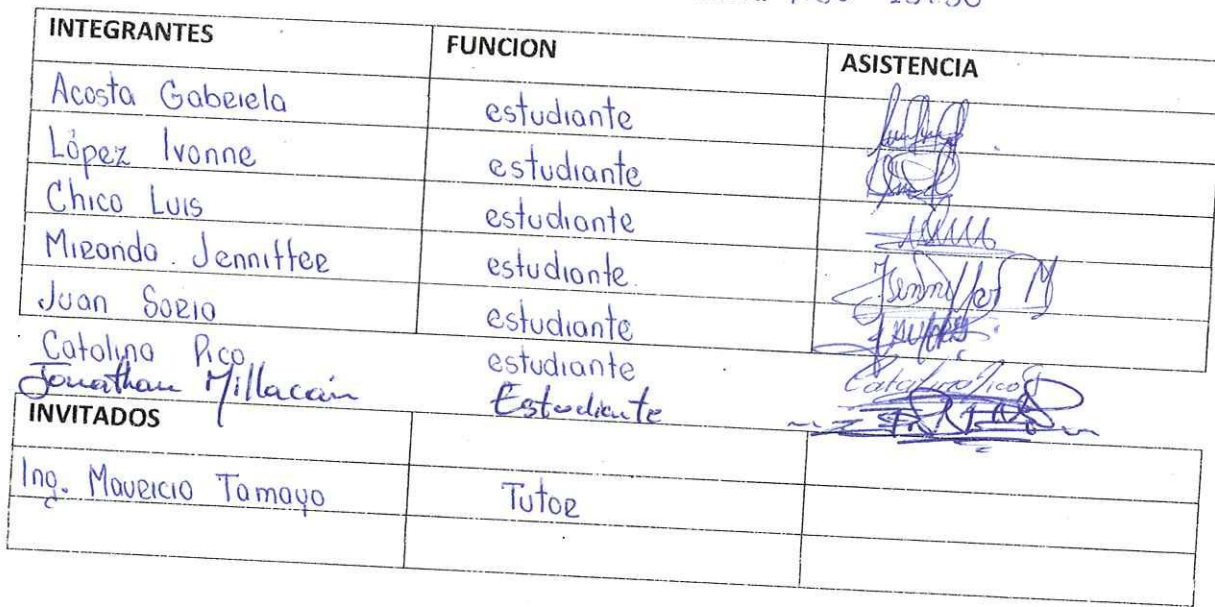 15:30
INTEGRANTES FUNCION ASISTENCIA
Acosta Gabriela estudiante
López Ivonne estudiante
Chico Luis estudiante
Miranda Jenniffer estudiante Jenniffer M
Juan Soria estudiante
Catalina Pico estudiante Catalina Pico
Jonathan Millacán Estudiante
INVITADOS
Ing. Mauricio Tamayo Tutor